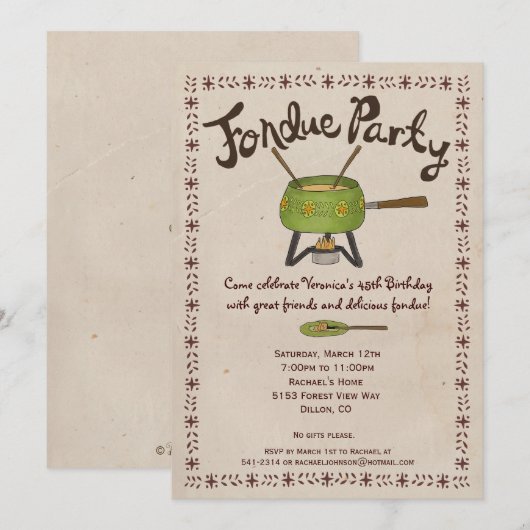 Fondue Party
Come celebrate Veronica's 45th Birthday
with great friends and delicious fondue!
Saturday, March 12th
7:00pm to 11:00pm
Rachael's Home
5153 Forest View Way
Dillon, CO
No gifts please.
RSVP by March 1st to Rachael at
541-2314 or rachaeljohnson@hotmail.com
©